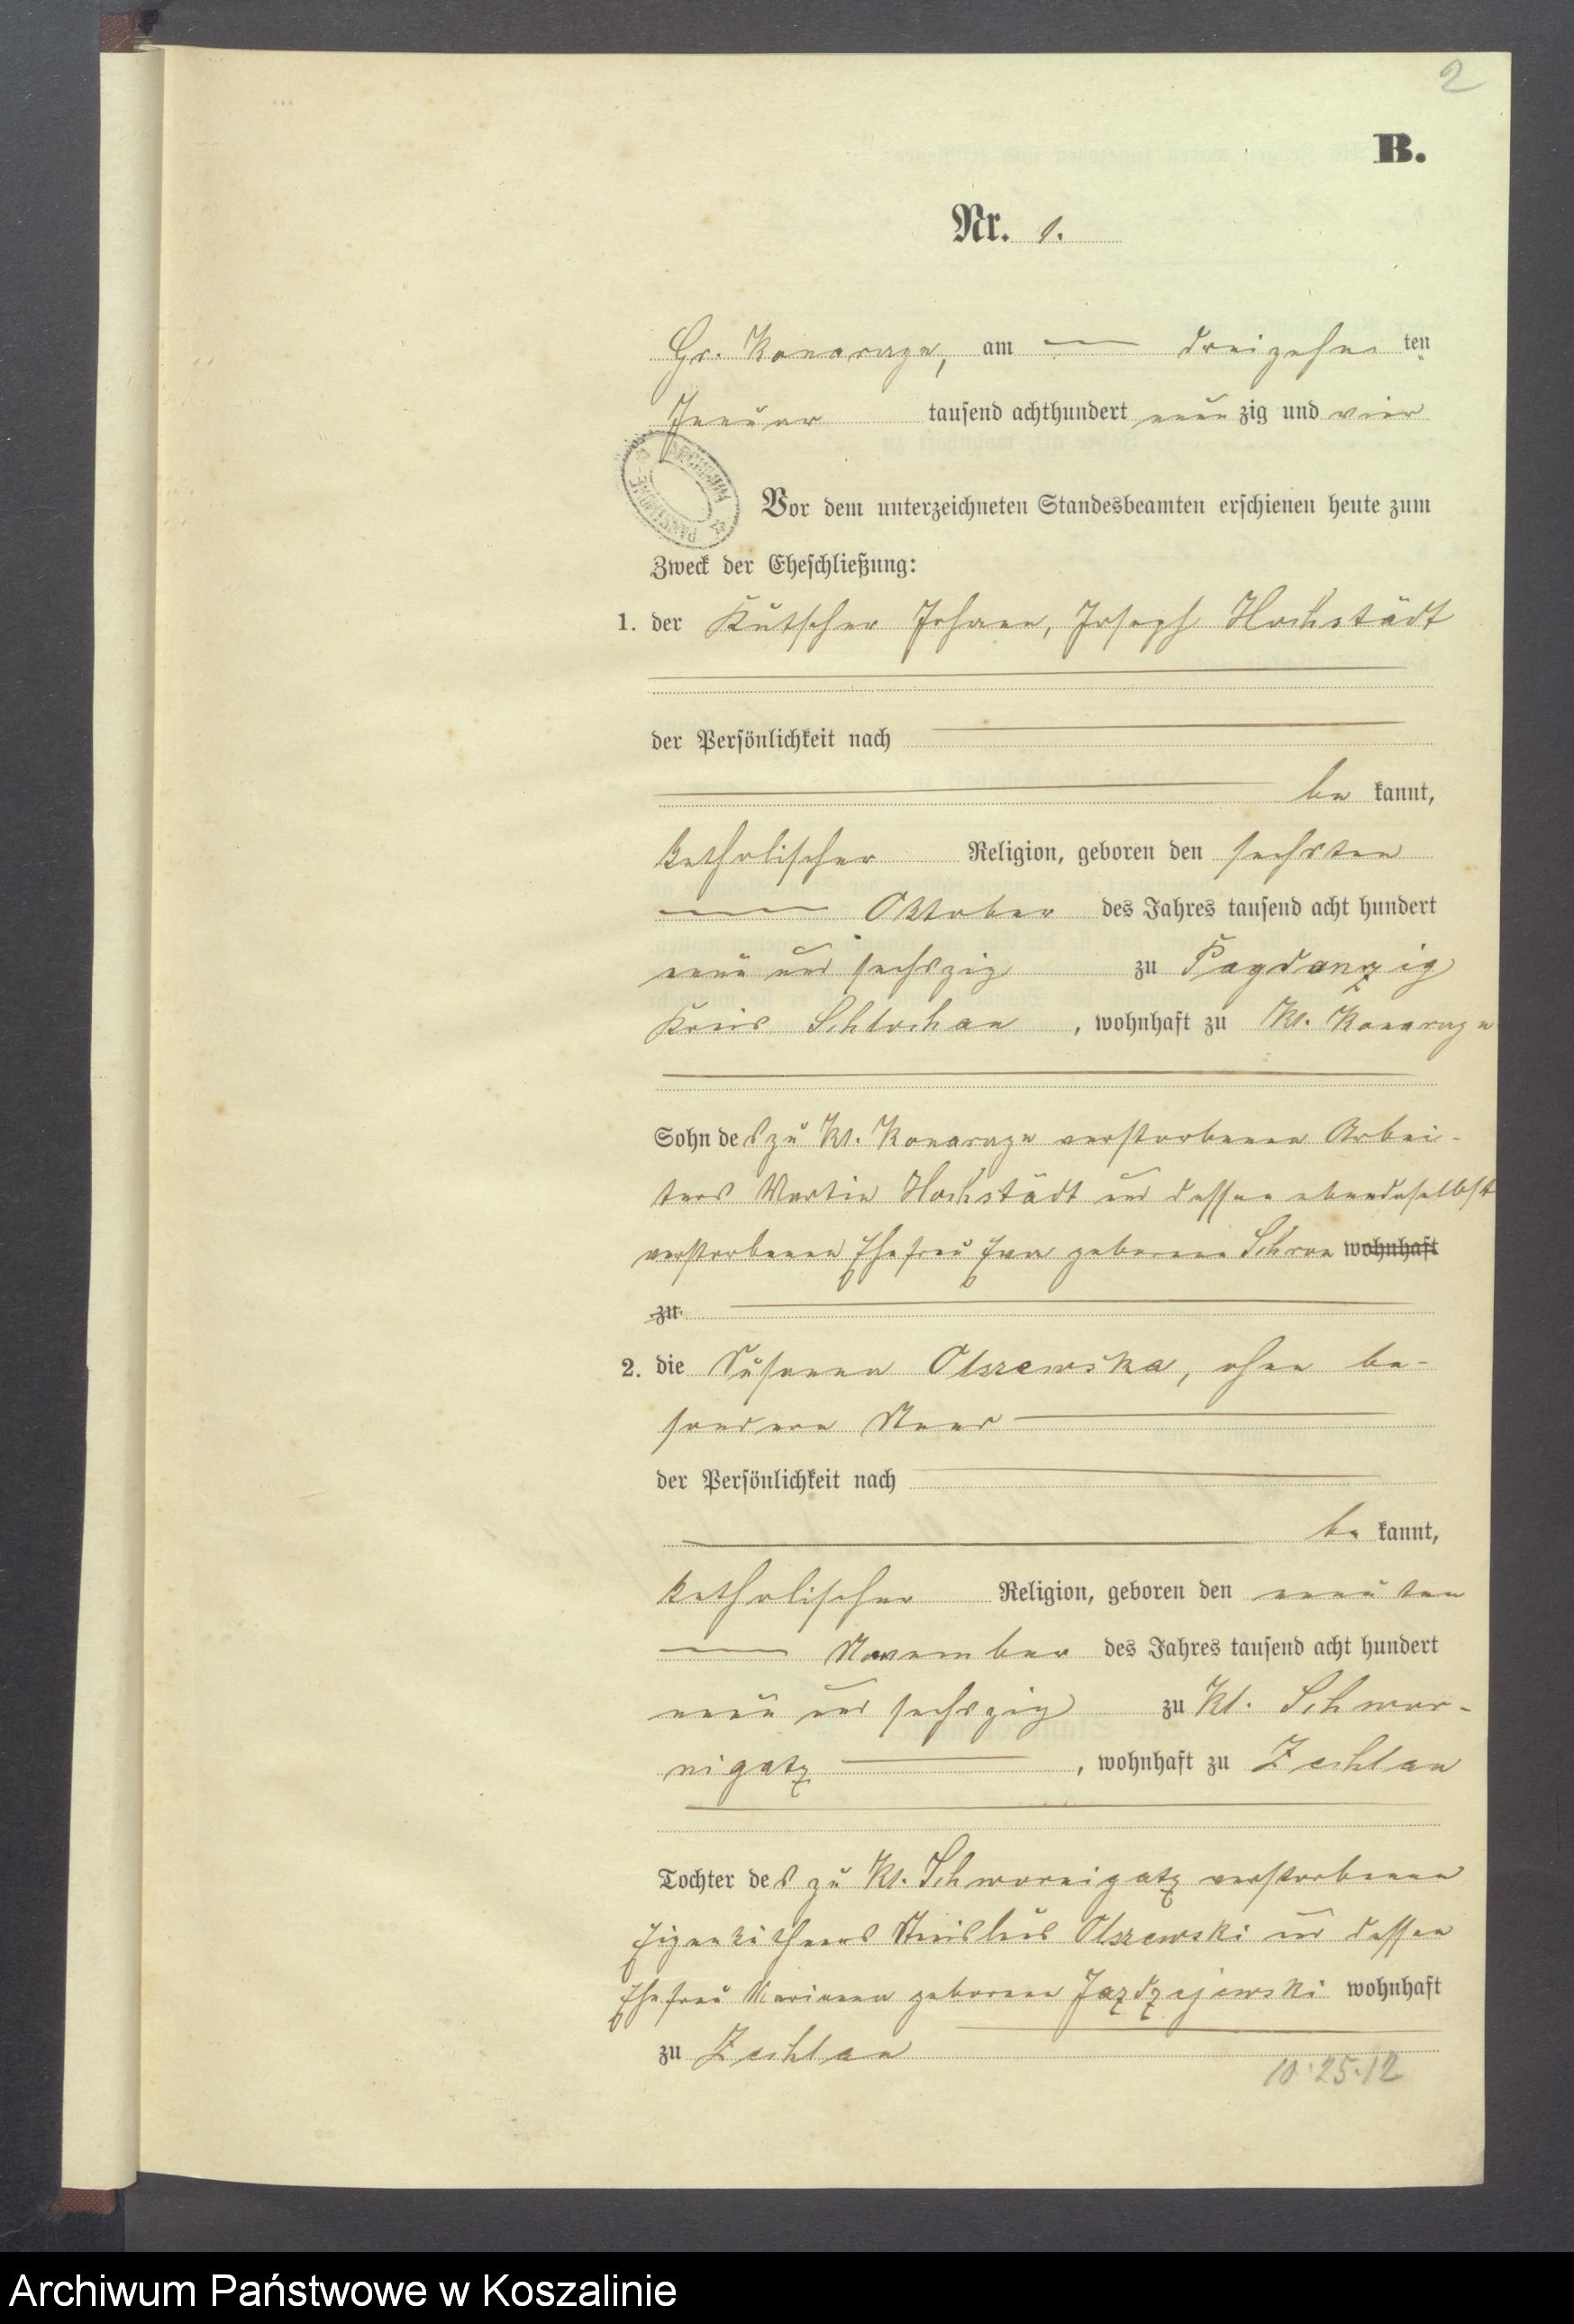 2
B.
Nr. 1.
Gr. Konarczyn, am dreizehn ten
Januar tausend achthundert neun zig und vier
Vor dem unterzeichneten Standesbeamten erschienen heute zum
Zweck der Eheschließung:
1. der Kutscher Johann, Joseph Hochstädt
der Persönlichkeit nach
be kannt,
katholischer Religion, geboren den sechsten
Oktober des Jahres tausend acht hundert
neun und sechszig zu Pagdanzig
Kreis Schlochau, wohnhaft zu Kl. Konarczyn
Sohn des zu Kl. Konarczyn verstorbenen Arbei-
ters Martin Hochstädt und dessen ebendaselbst
verstorbenen Ehefrau Eva geborene wohnhaft
zu
2. die Susanna Olszewska, ohne be-
sonderen Stand
der Persönlichkeit nach
be kannt,
katholischer Religion, geboren den neunten
November des Jahres tausend acht hundert
neun und sechszig zu Kl. Schwor-
nigatz, wohnhaft zu Zechlau
Tochter des zu Kl. Schwornigatz verstorbenen
Eigenkäthners Olszewski und dessen
Ehefrau Marianna geborene Jazdzejewski wohnhaft
zu Zechlau
10.25.12
Archiwum Państwowe w Koszalinie